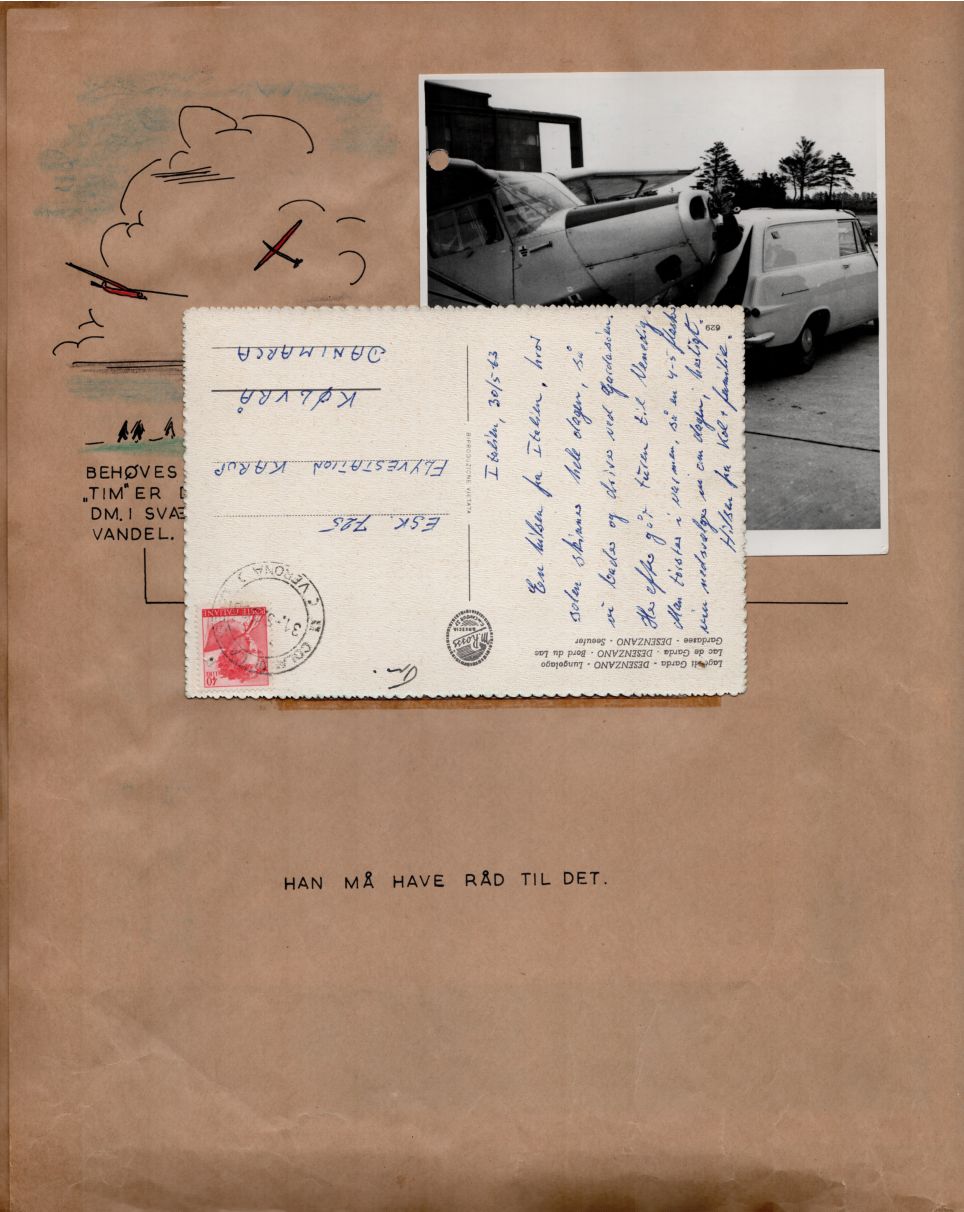 BEHØVES
"TIM" ER D
DM. I SVÆ
VANDEL.
629
Italien, 30/5-63
En hilsen fra Italien, hvor
solen skinner hele dagen, så
vi bader og driver ved Gardasøen.
Her efter går turen til Venedig.
Man tørster i varmen, så en 4-5 flasker
vin nedsvælges om dagen, herligt.
Hilsen fra Kol + familie.
RIPRODUZIONE VIETATA
ESK. 725
FLYVESTATION KARUP
KØLVRÅ
DANIMARCA
Lago di Garda - DESENZANO - Lungolago
Lac de Garda - DESENZANO - Bord du Lac
Gardasee - DESENZANO - Seeufer
M. Rossi
BRESCIA
POSTE ITALIANE
LIRE 40
VERONA
HAN MÅ HAVE RÅD TIL DET.